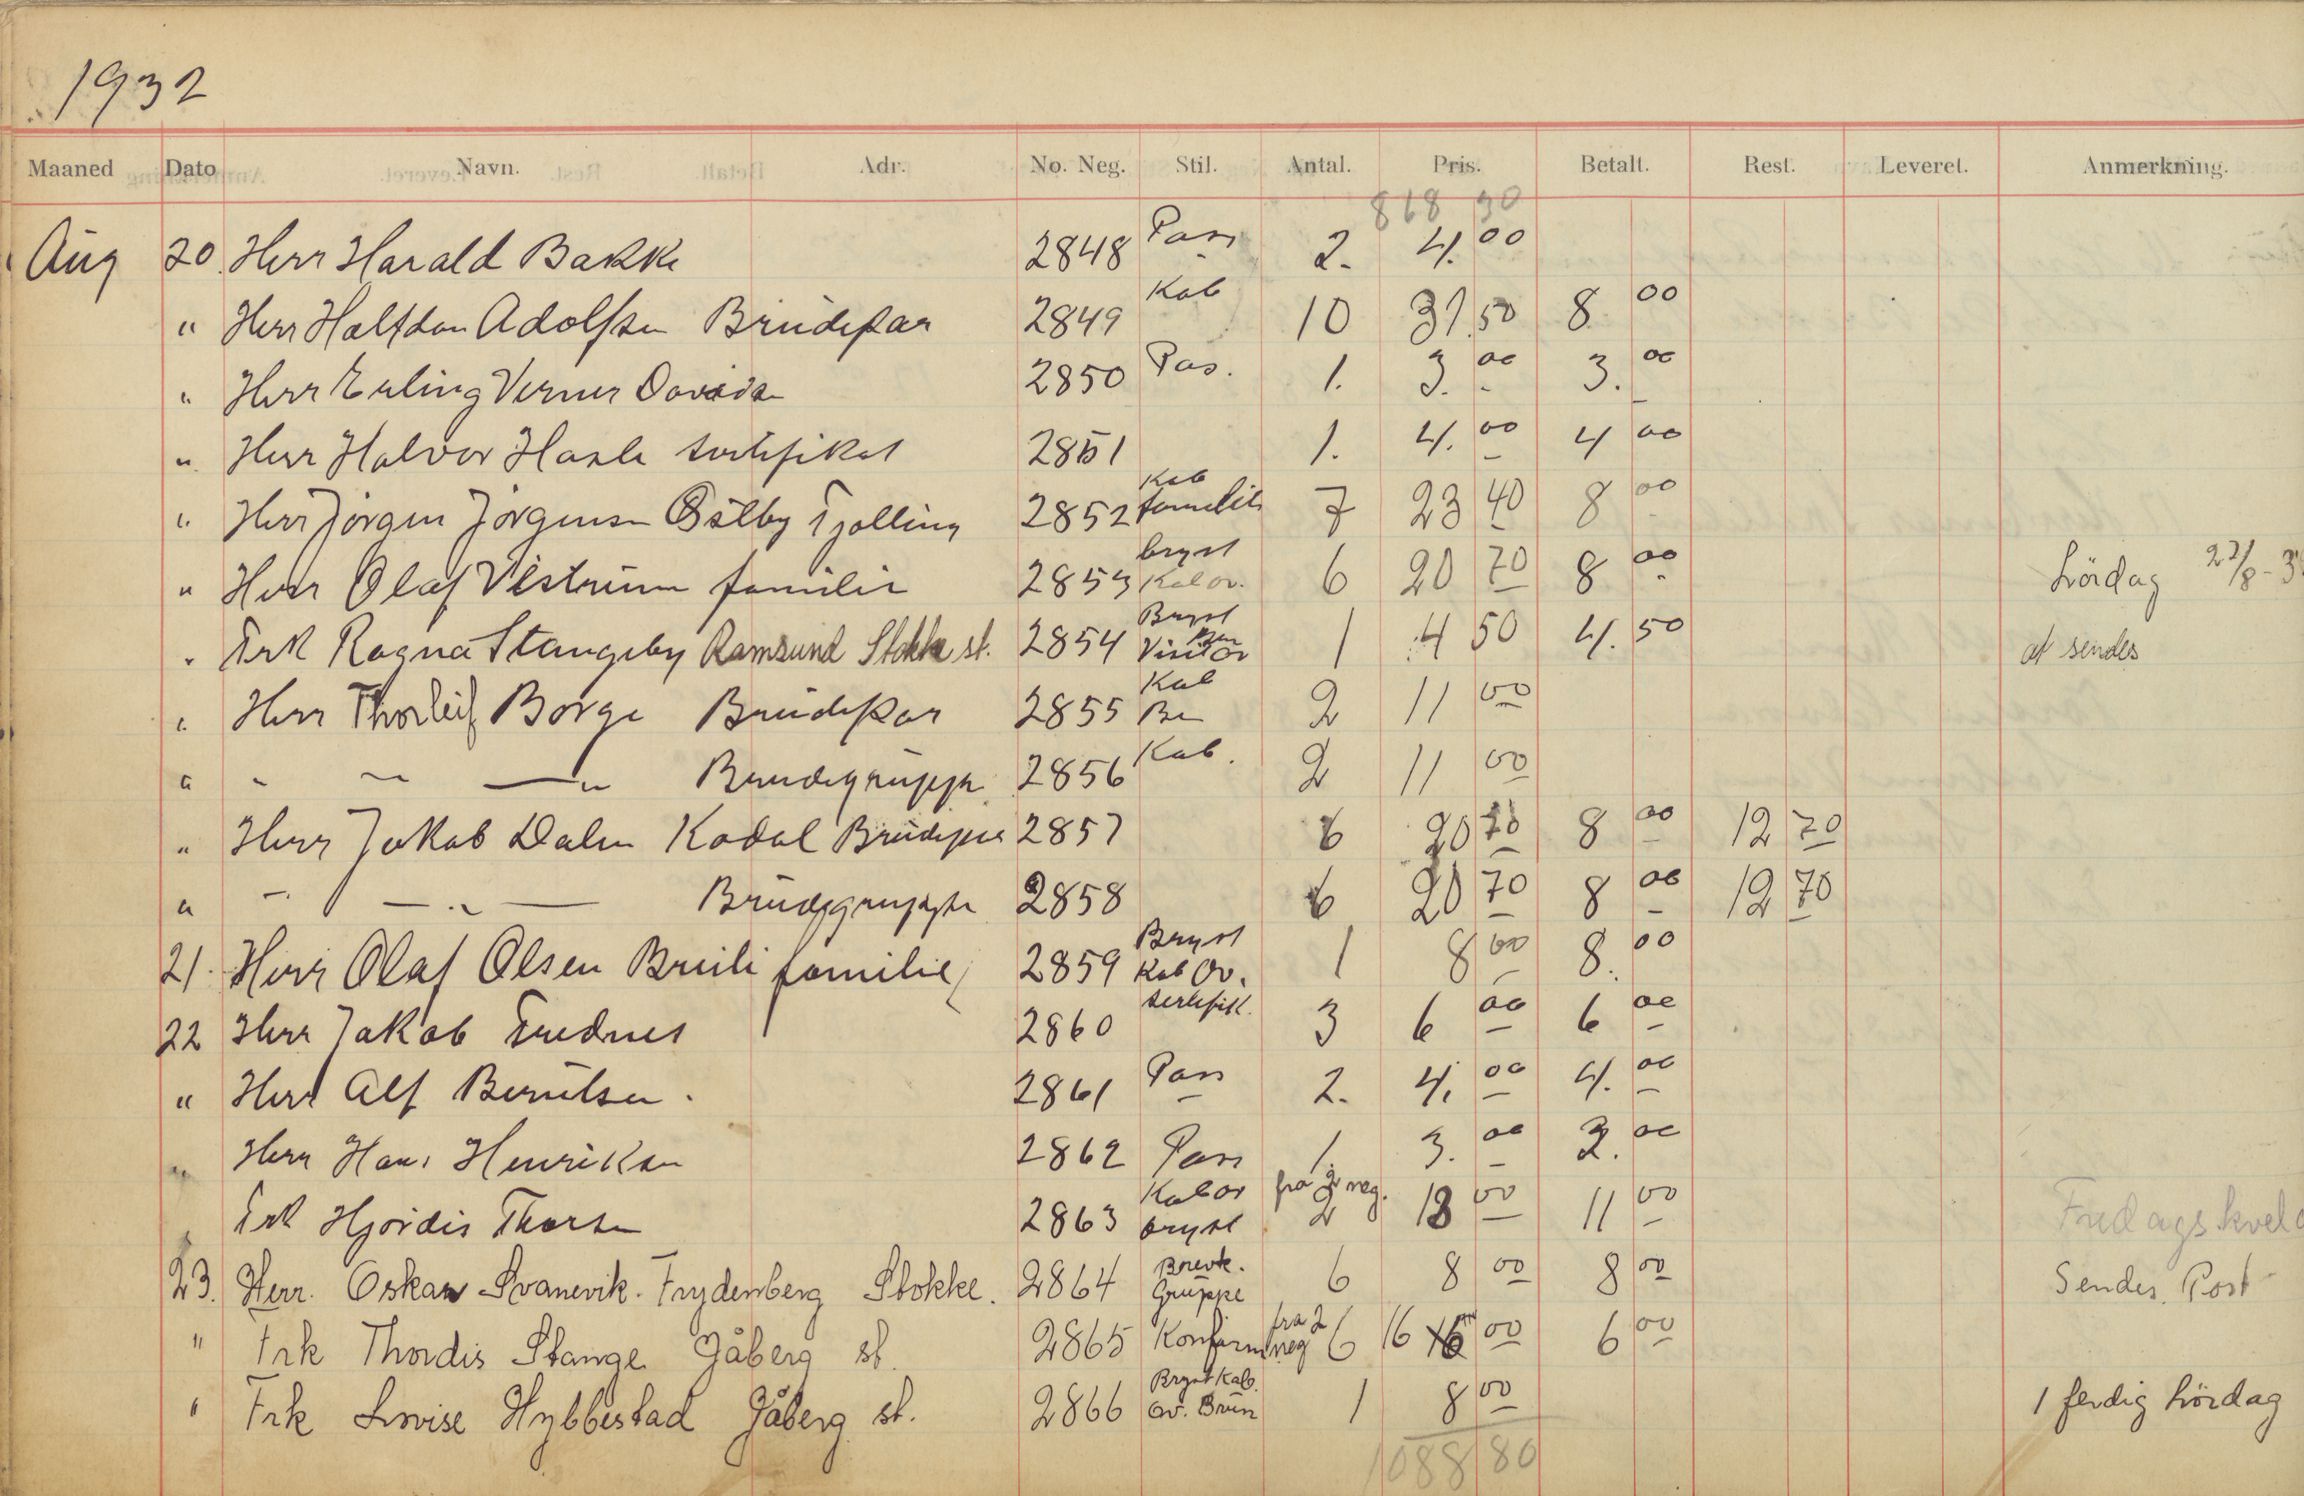 1932
Maaned Dato Navn. Adr. No. Neg. Stil. Antal. Pris. Betalt. Rest. Leveret. Anmerkning.
868 30
Aug 20 Herr Harald Bakke 2848 Pass 2. 4.00
" Herr Halfdan Adolfsen Brudepar 2849 Kab 10 31.50 8 00
" Herr Erling Verner Davidsen 2850 Pas. 1. 3.00 3.00
" Herr Halvor Hasle sertifikat 2851 1. 4.00 4 00
" Herr Jörgen Jörgensen Östby Tjølling 2852 Kab familie 7 23 40 8 00
" Herr Olaf Vestrum familie 2853 bryst Kab ov. 6 20 70 8 00 Lördag 27/8-3
" Frk Ragna Stangeby Ramsund Stokke st. 2854 Bryst Visit Brun Ov 1 4 50 4.50 at sendes
" Herr Thorleif Borge Brudepar 2855 Kab Br 2 11 00
" " " " Brudegruppe 2856 Kab. 2 11 00
" Herr Jakob Dalen Kodal Brudepar 2857 6 20 70 8 00 12 70
" " " Brudegruppe 2858 6 20 70 8 00 12 70
21. Herr Olaf Olsen Bruli familie 2859 Bryst Kab Ov. 1 8 00 8.00
22 Herr Jakob Frednes 2860 sertifik. 3 6 00 6 00
" Herr Alf Berntsen. 2861 Pass 2. 4.00 4.00
" Herr Hans Henriksen 2862 Pass 1. 3.00 3.00
" Frk Hjørdis Thorsen 2863 Kab ov bryst fra 2 neg. 2 18 00 11 00 Fredagskveld
23. Herr. Oskar Svanevik. Frydenberg Stokke. 2864 Brevk. Gruppe 6 8 00 8 00 Sendes. Post
" Frk Thordis Stange Jåberg st. 2865 Konfirm fra 2 neg 6 16 00 6 00
" Frk Lovise Hybbestad Jåberg st. 2866 Bryst Kab. ov. Brun 1 8 00 1 ferdig Lördag
1088 80